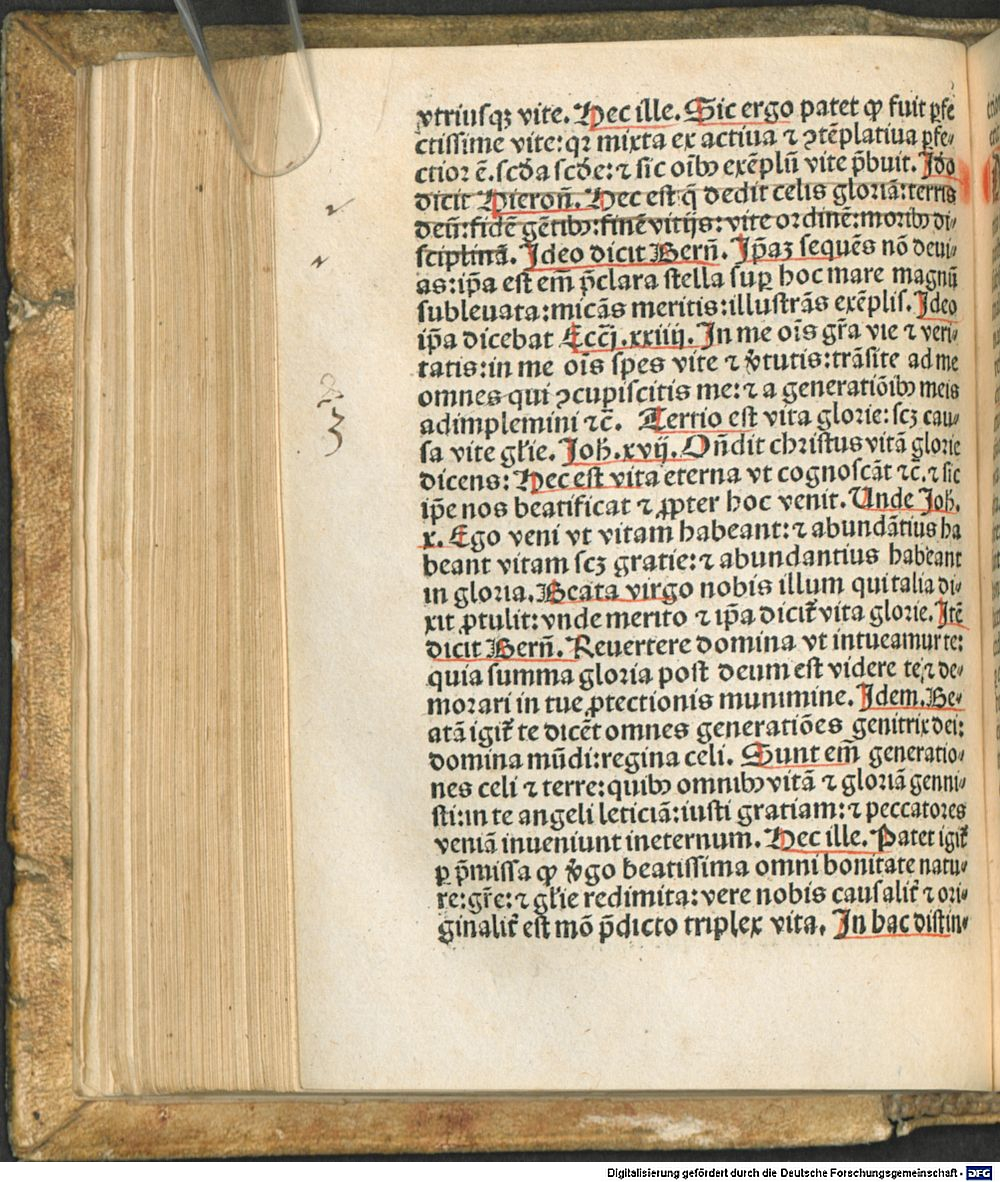 vtriusqꝫ vite. Hec ille. Sic ergo patet ꝙ fuit ꝑfe
ctissime vite: qꝛ mixta ex actiua ⁊ ꝯtẽplatiua ꝑfe-
ctior ẽ. scďa scďe: ⁊ sic oĩbꝰ exẽplũ vite p̃buit. Jđo
dicit Hieroñ. Hec est q̃ dedit celis gloriã: terris
deũ: fidẽ gẽtibꝰ: finẽ vitijs: vite ordinẽ: moribꝰ di-
sciplinã. Jdeo dicit Berñ. Jp̃aꝫ sequẽs nõ deui-
as: ip̃a est em̃ p̃clara stella suꝑ hoc mare magnũ
subleuata: micãs meritis: illustrãs exẽplis. Jdeo
ip̃a dicebat Ecc̃j. xxiiij. Jn me oĩs gr̃a vie ⁊ veri-
tatis: in me oĩs spes vite ⁊ v̓tutis: trãsite ad me
omnes qui ꝯcupiscitis me: ⁊ a generatiõibꝰ meis
adimplemini ⁊c̃. Tertio est vita glorie: scꝫ cau-
sa vite gl̃ie. Joh̃. xvij. Oñdit christus vitã glorie
dicens: Hec est vita eterna vt cognoscãt ⁊c̃. ⁊ sic
ip̃e nos beatificat ⁊ ꝓpter hoc venit. Unde Joh̃.
x. Ego veni vt vitam habeant: ⁊ abundãtius ha
beant vitam scꝫ gratie: ⁊ abundantius habeant
in gloria. Beata virgo nobis illum qui talia di-
xit ꝓtulit: vnde merito ⁊ ip̃a dicit᷑ vita glorie. Jtẽ
dicit Berñ. Reuertere domina vt intueamur te:
quia summa gloria post deum est videre te, ⁊ de-
morari in tue ꝓtectionis munimine. Jdem. Be-
atã igit᷑ te dicẽt omnes generatiões genitrix dei:
domina mũdi: regina celi. Sunt em̃ generatio-
nes celi ⁊ terre: quibꝰ omnibꝰ vitã ⁊ gloriã genni-
sti: in te angeli leticiã: iusti gratiam: ⁊ peccatores
veniã inueniunt ineternum. Hec ille. Patet igit᷑
ꝑ p̃missa ꝙ v̓go beatissima omni bonitate natu-
re: gr̃e: ⁊ gl̃ie redimita: vere nobis causalit᷑ ⁊ ori-
ginalit᷑ est mõ p̃dicto triplex vita. Jn hac distin-
3
Digitalisierung gefördert durch die Deutsche Forschungsgemeinschaft - DFG